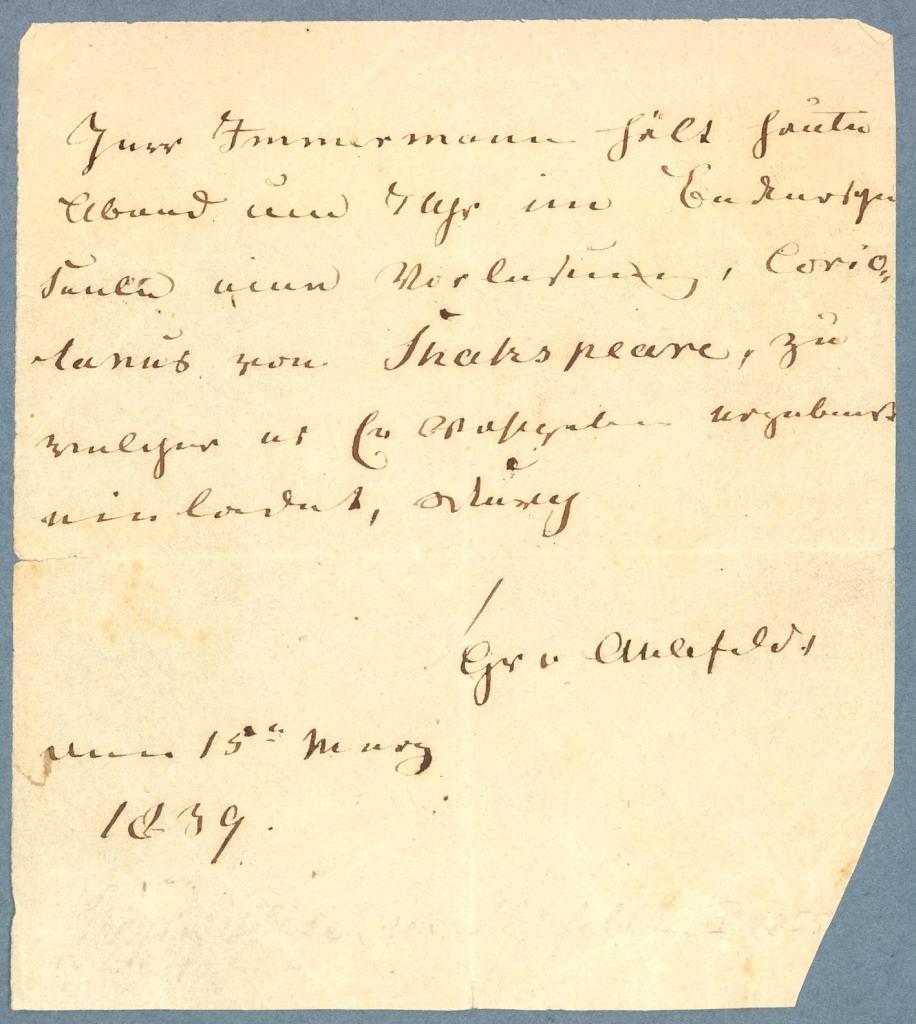 Herr Immermann hält heute
Abend um 7 Uhr im
Saale eine Vorlesung, Corio„
lanus von Shakspeare, zu
welcher er Ew Wohlgeben ergebenst
einladet, durch
Gr v Ahlefeldt
den 15ten März
1839.